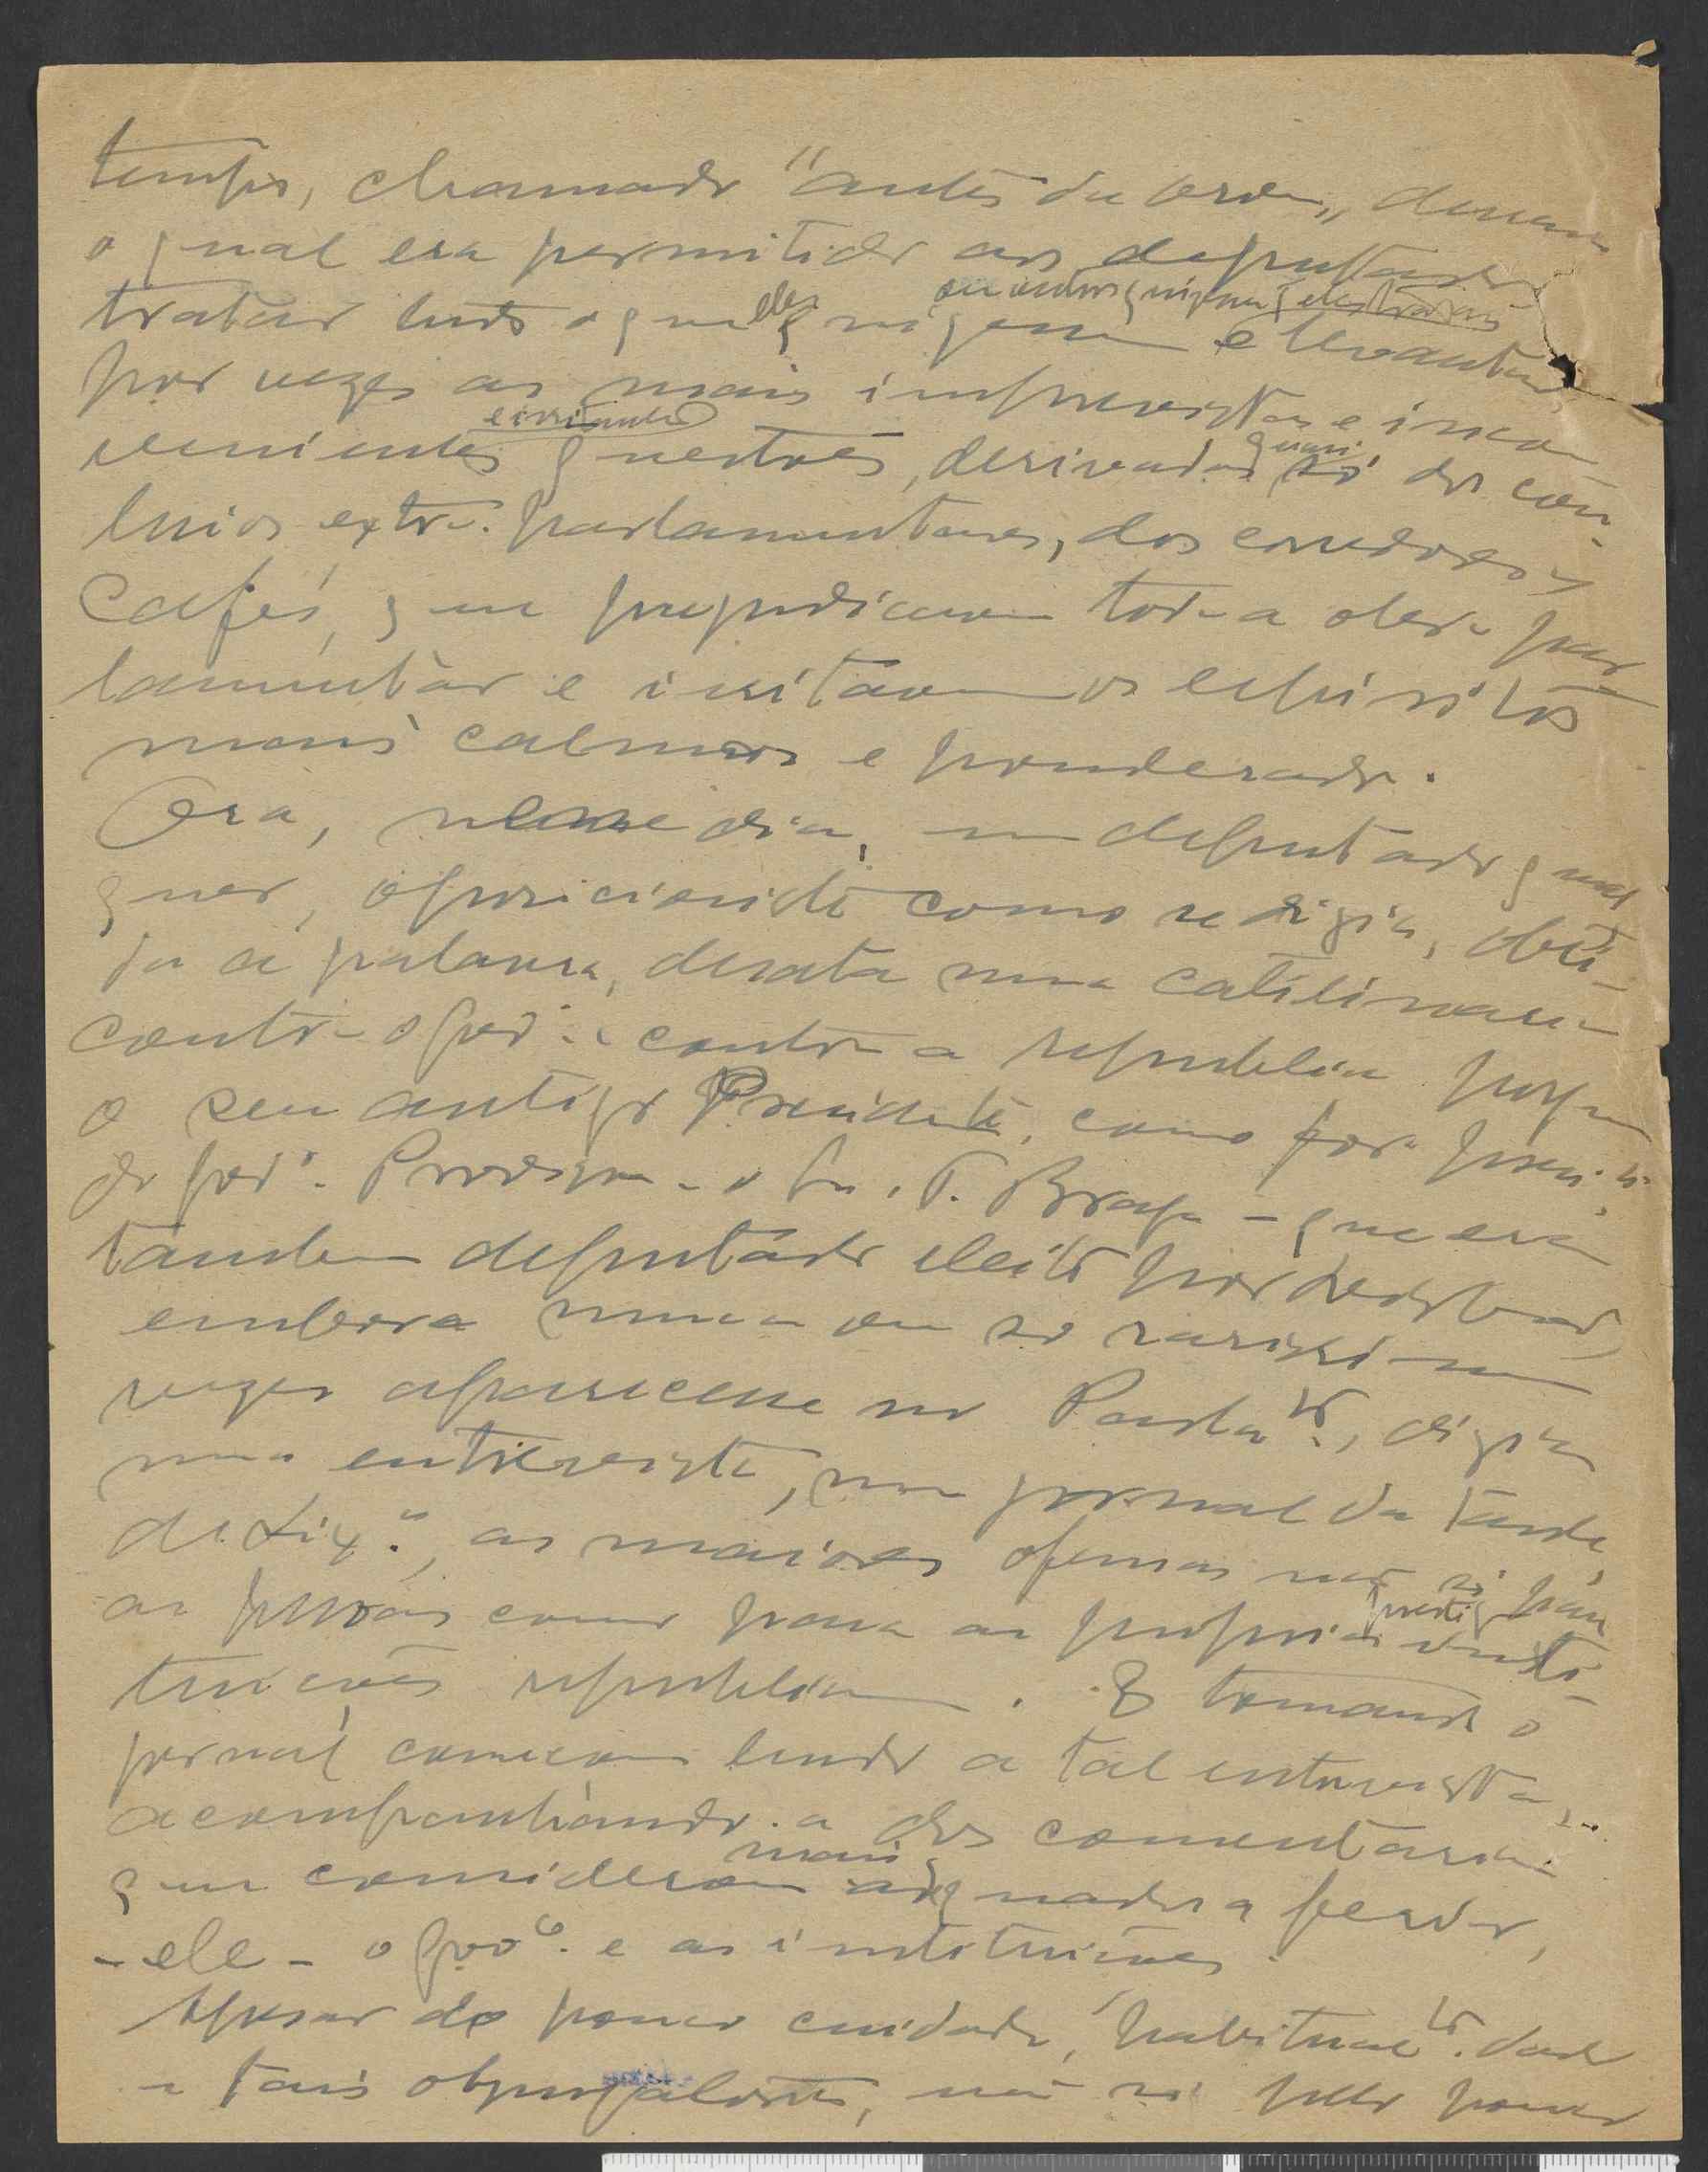 tempo, chamado "antes da ordem", durante
o qual era permitido aos deputados
ou outros quizessem q eles tratassem
tratar tudo o que eles quizessem e levantar
por vezes as mais imprevistas e incon
e irritantes
venientes questões, derivadas quasi só dos con-
luios extra-parlamentares, dos corredores e
Cafés, que prejudicavam toda a obra par-
lamentar e irritavam os espiritos
mais calmos e ponderados.
Ora, nesse dia, um deputado qual
quer, oposicionista como se dizia, obti-
da a palavra, desata numa catilinaria
contra o govº. e contra a republica porque
o seu antigo Presidente, como fora
do govº. Provisorio - o Sr. T. Braga - que era
tambem deputado eleito por Lisboa,
embora nunca ou só rarissimas
vezes aparecesse no Parlatº., dizia
numa entrevista, num jornal da tarde
de Lixª., as maiores ofensas não só para
as pessoas como para as proprias insti-
tuições republicanas. E tomando o
jornal começou lendo a tal entrevista,
acompanhando-a dos comentarios
que considerou mais adequados a ferir,
- ele - o govº. e as instituições.
Apesar do pouco cuidado, habitualtº. dado
a tais objurgatorias, não só pelo pouco